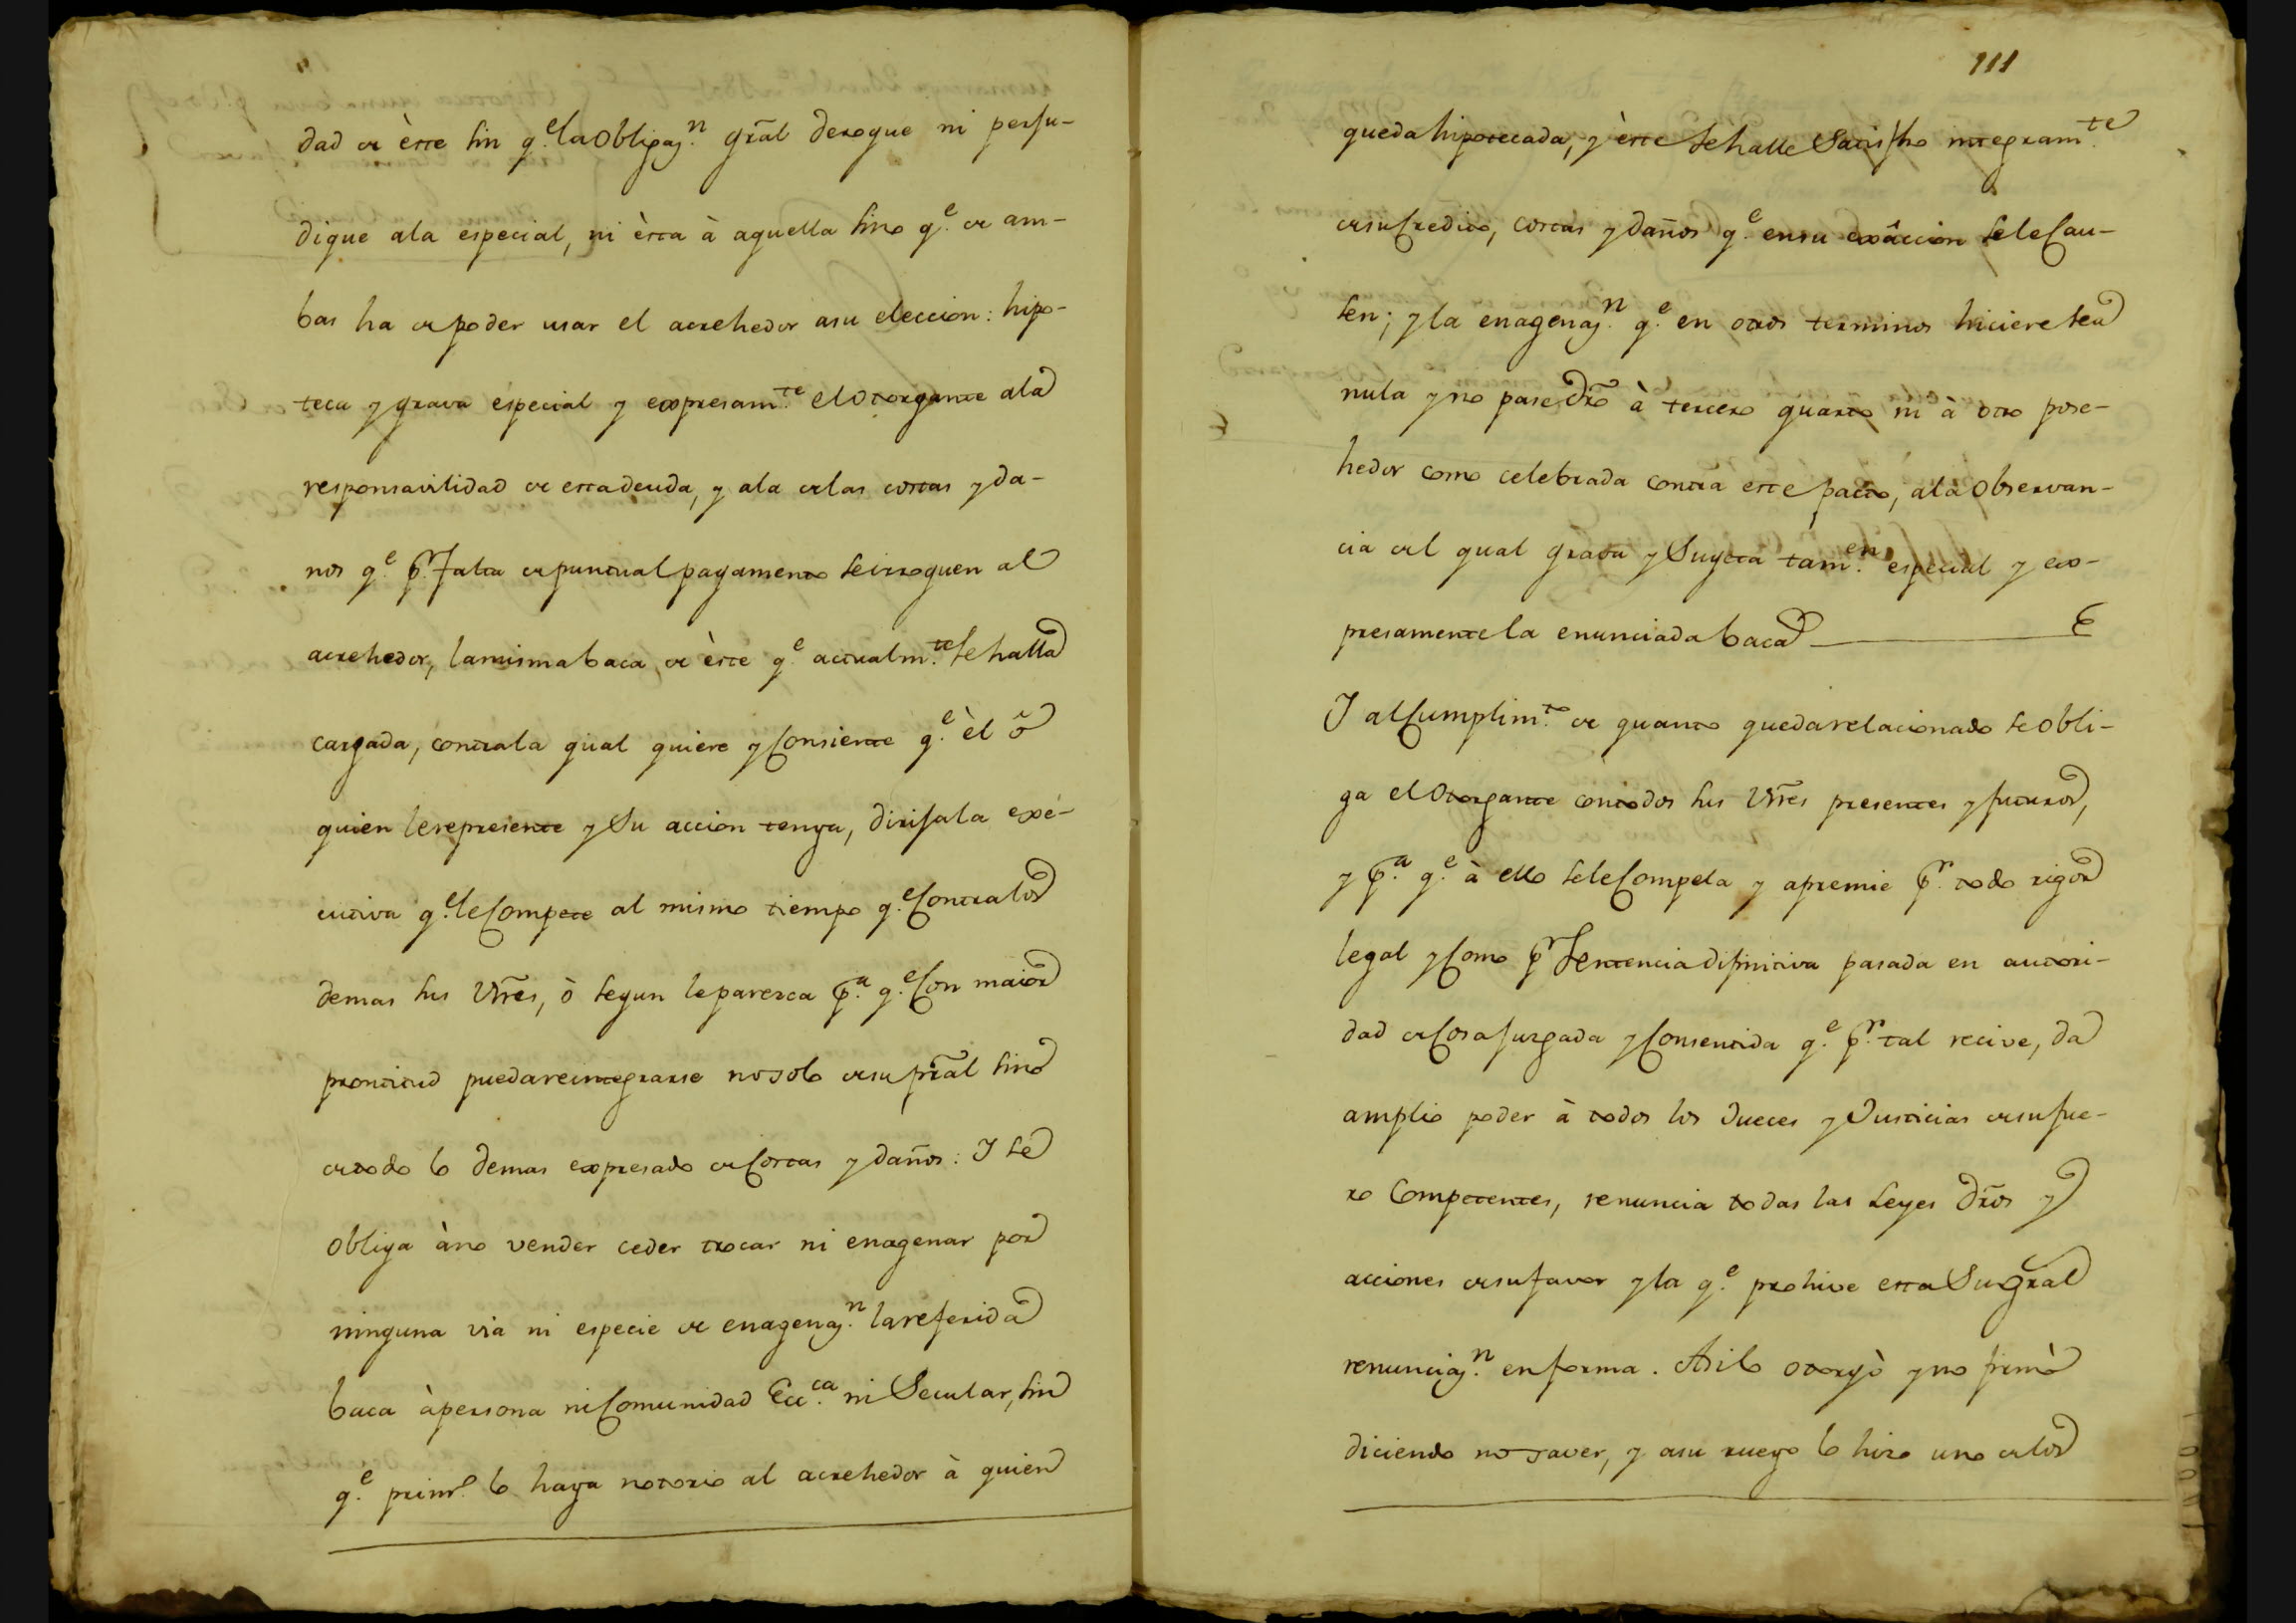 dad de èste sin q.e la Obligaz.n gr̃al derogue ni perju-
dique ala especial, ni èsta à aquella sino q.e de am-
bas ha de poder usar el acrehedor asu eleccion: hipo-
teca y grava especial y expresam.te el Otorgante ala
responsavilidad de esta deuda, y ala delas costas y da-
nos q.e p.r falta de puntual pagamento se irroguen al
acrehedor, la misma baca de èste q.e actualm.te se halla
cargada, contra la qual quiere y Consiente q.e èl ò
quien le represente y Su accion tenga, dirija la exe-
cutiva q.e le Compete al mismo tiempo q.e Contra los
demas sus Vr̃es, ò segun le paresca p.a q.e Con maior
prontitud pueda reintegrarse no solo de su pr̃al sino
de todo lo demas expresado de Costas y daños: Y se
Obliga à no vender ceder trocar ni enagenar por
ninguna via ni especie de enagenaz.n la referida
baca à persona ni Comunidad Ecc.ca ni Secular, sin
q.e prim.o lo haga notorio al acrehedor à quien
111
queda hipotecada, y èste se halle Satisfho integram.te
de su Credito, costas y daños q.e en su exâccion se le Cau-
sen; y la enagenaz.n q.e en otros terminos hiciere sea
nula y no pase dr̃o à tercero quarto ni à otro pose-
hedor como celebrada contra este pacto, ala Observan-
cia del qual grava y Sugeta tam.en especial y ex-
presamente la enunciada baca
Y al Cumplim.to de quanto queda relacionado se obli-
ga el Otorgante con todos sus Vr̃es presentes y futuros,
y p.a q.e à ello se le Compela y apremie p.r todo rigor
legal y Como p.r Sentencia difinitiva pasada en autori-
dad de Cosa juzgada y Consentida q.e p.r tal recive, da
amplio poder à todos los Jueces y Justicias de su fue-
ro Competentes, renuncia todas las Leyes dr̃os y
acciones de su favor y la q.e prohive esta Su gr̃al
renunciaz.n en forma. Asi lo otorgò y no firmò
diciendo no saver, y asu ruego lo hizo uno delos